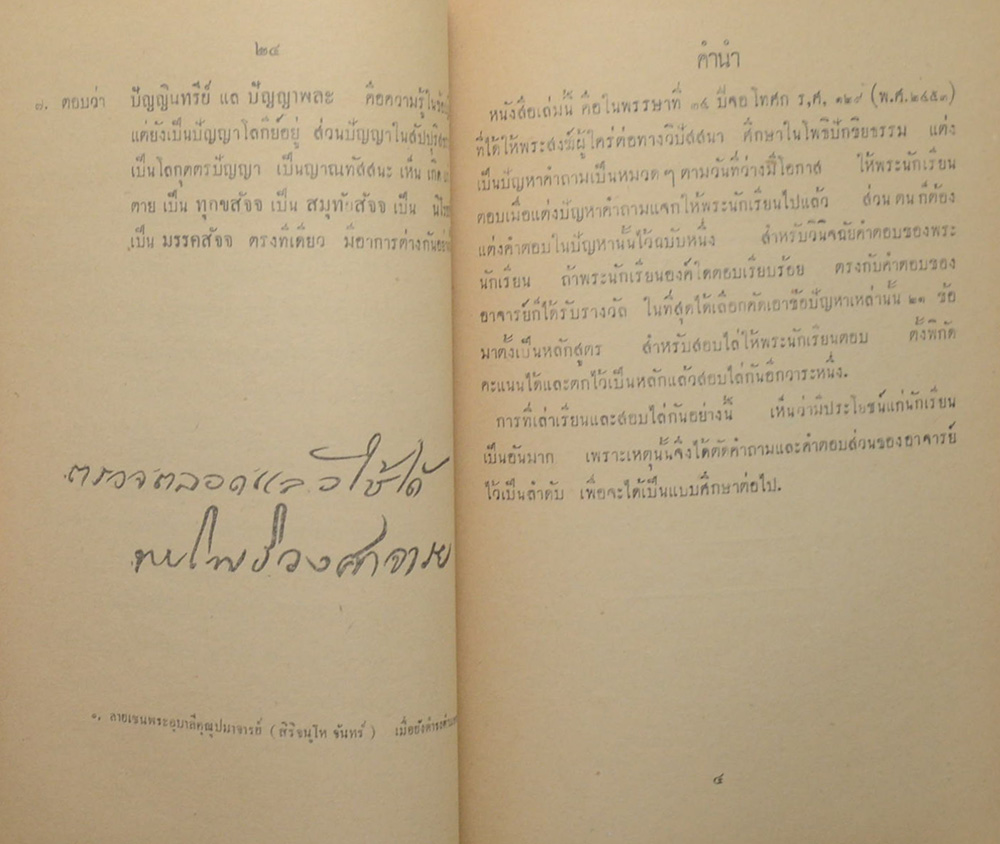 ๒๔
๗. ตอบว่า ปัญญินทรีย์ แล ปัญญาพละ คือความรู้ใน
แต่ยังเป็นปัญญาโลกีย์อยู่ ส่วนปัญญาในสัปปุริส
เป็นโลกุตตรปัญญา เป็นญาณทัสสนะ เห็น เกิด
ตาย เป็น ทุกขสัจจ เป็น สมุทัยสัจจ เป็น
เป็น มรรคสัจจ ตรงทีเดียว มีอาการต่างกันอย่าง
ตรวจตลอดแล้วใช้ได้
๑. ลายเซนพระอุบาลีคุณูปมาจารย์ (สิริจนฺโท จันทร์) เมื่อยังดำรง
คำนำ
หนังสือเล่มนี้ คือในพรรษาที่ ๓๔ ปีจอโทศก ร,ศ, ๑๒๙ (พ.ศ.๒๔๕๓)
ที่ได้ให้พระสงฆ์ผู้ใคร่ต่อทางวิปัสสนา ศึกษาในโพธิปักขิยธรรม แต่ง
เป็นปัญหาคำถามเป็นหมวดๆ ตามวันที่ว่างมีโอกาส ให้พระนักเรียน
ตอบเมื่อแต่งปัญหาคำถามแจกให้พระนักเรียนไปแล้ว ส่วนตนก็ต้อง
แต่งคำตอบในปัญหานั้นไว้ฉบับหนึ่ง สำหรับวินิจฉัยคำตอบของพระ
นักเรียน ถ้าพระนักเรียนองค์ใดตอบเรียบร้อย ตรงกับคำตอบของ
อาจารย์ก็ได้รับรางวัล ในที่สุดได้เลือกคัดเอาข้อปัญหาเหล่านั้น ๒๑ ข้อ
มาตั้งเป็นหลักสูตร สำหรับสอบไล่ให้พระนักเรียนตอบ ตั้งพิกัด
คะแนนได้และตกไว้เป็นหลักแล้วสอบไล่กันอีกวาระหนึ่ง.
การที่เล่าเรียนและสอบไล่กันอย่างนี้ เห็นว่ามีประโยชน์แก่นักเรียน
เป็นอันมาก เพราะเหตุนั้นจึงได้คัดคำถามและคำตอบส่วนของอาจารย์
ไว้เป็นลำดับ เพื่อจะได้เป็นแบบศึกษาต่อไป.
๔